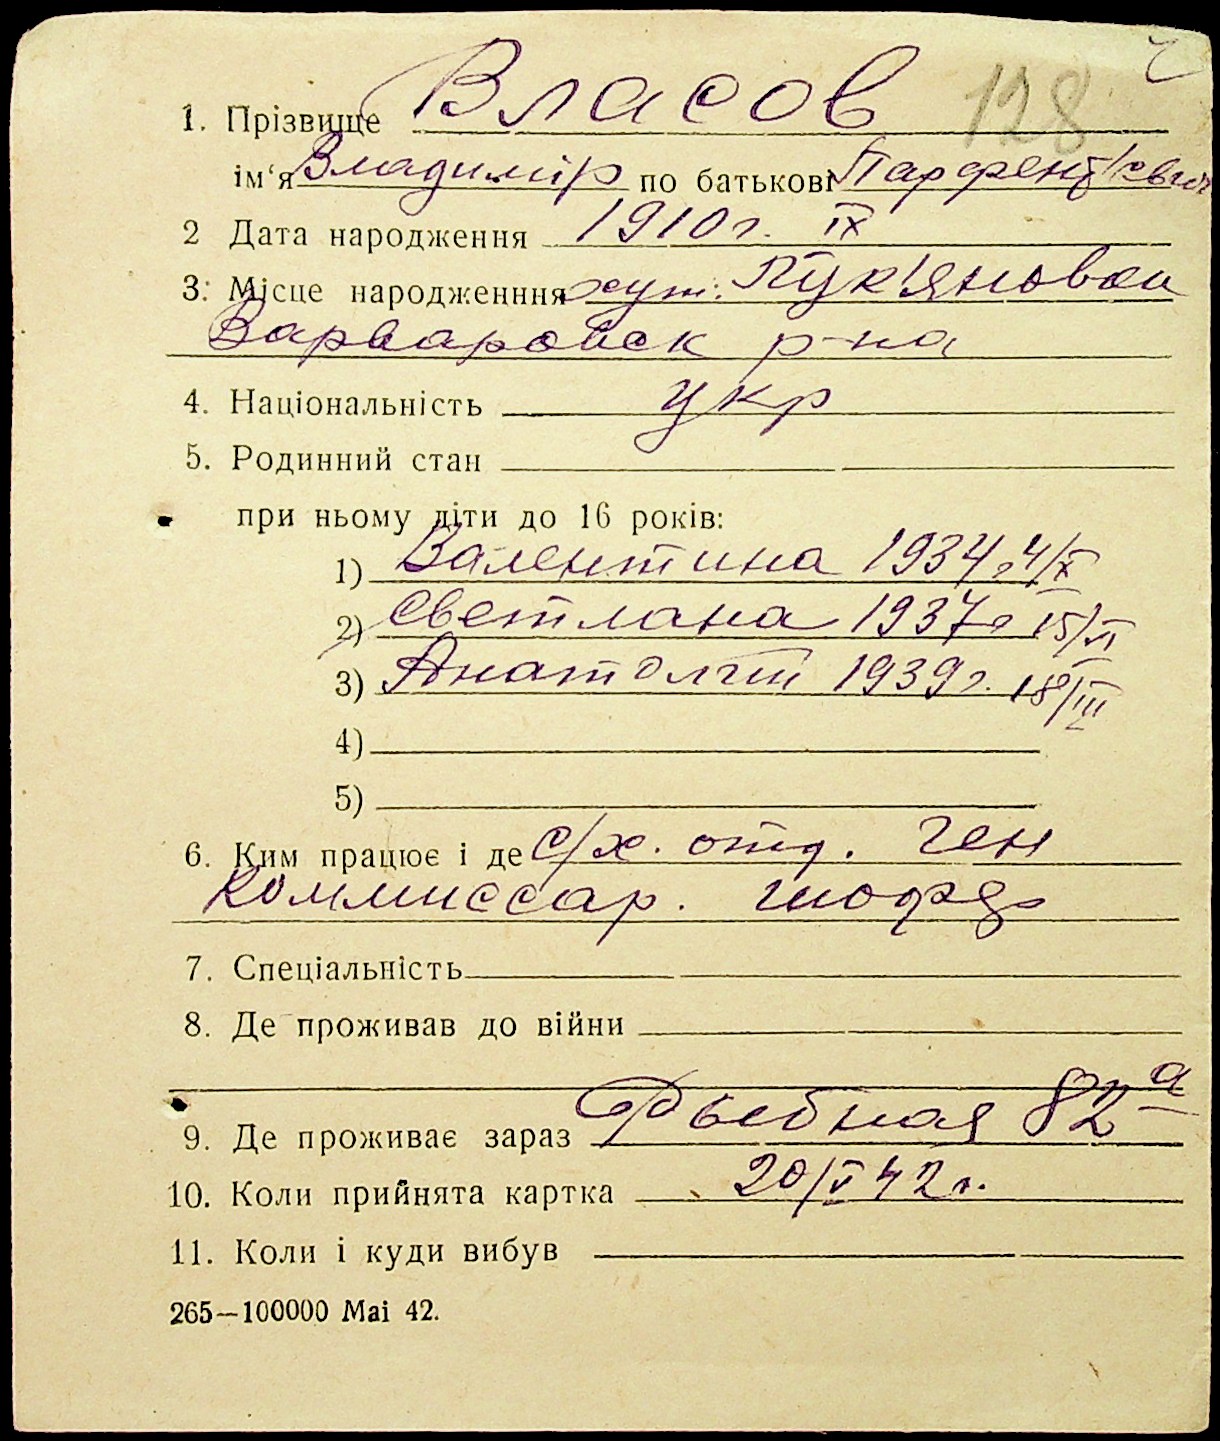 128
1. Прізвище Власов
ім‘я Владимір по батькові Парфентьевич
2 Дата народження 1910 г. IX
3. Місце народженння хут. Лук'яновка
Варваровск р-на
4. Національність укр
5. Родинний стан
при ньому діти до 16 років:
1) Валентина 1934 г 4/X
2) Светлана 1937 г 15/VI
3) Анатолий 1939 г. 18/III
4)
5)
6. Ким працює і де с/х. отд. ген
коммиссар.
7. Спеціальність
8. Де проживав до війни
9. Де проживає зараз Рыбная 82 а
10. Коли прийнята картка 20/V 42 г.
11. Коли і куди вибув
265—100000 Mai 42.